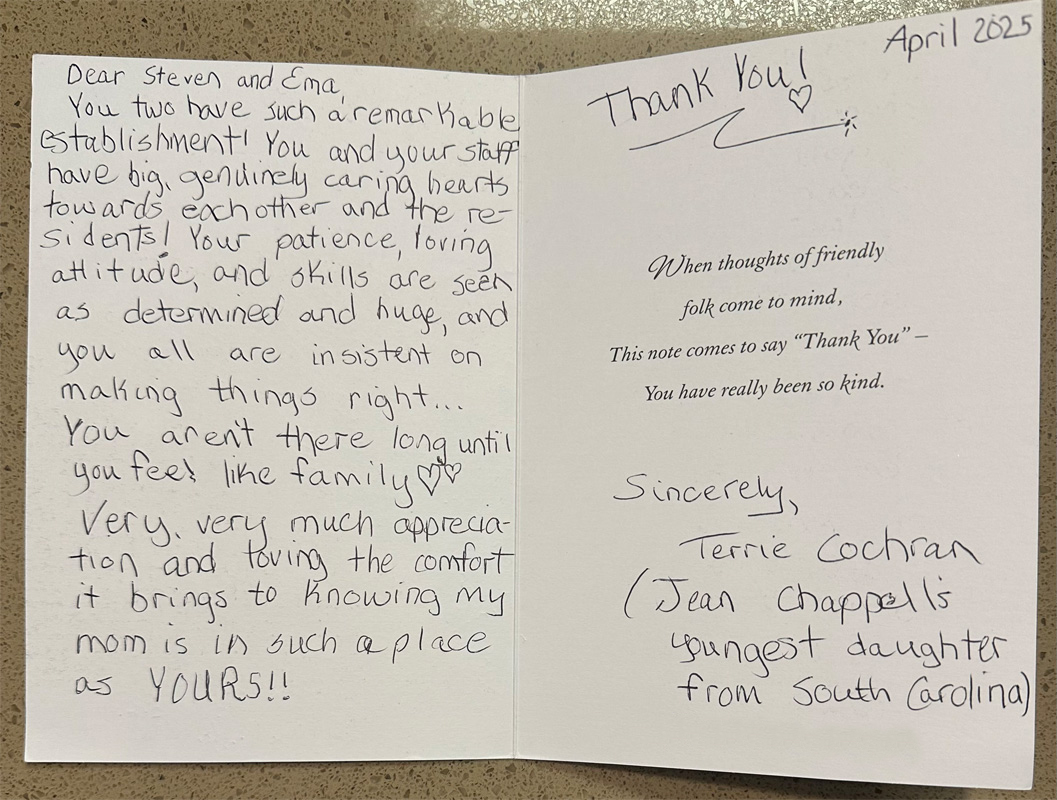 Dear Steven and Ema,
You two have such a remarkable
establishment! You and your staff
have big, genuinely caring hearts
towards each other and the re-
sidents! Your patience, loving
attitude, and skills are seen
as determined and huge, and
you all are insistent on
making things right...
You aren't there long until
you feel like family♡♡
Very, very much apprecia-
tion and loving the comfort
it brings to knowing my
mom is in such a place
as YOURS!!
April 2025
Thank You!
♡
When thoughts of friendly
folk come to mind,
This note comes to say “Thank You” –
You have really been so kind.
Sincerely,
Terrie Cochran
(Jean Chappell's
youngest daughter
from South Carolina)